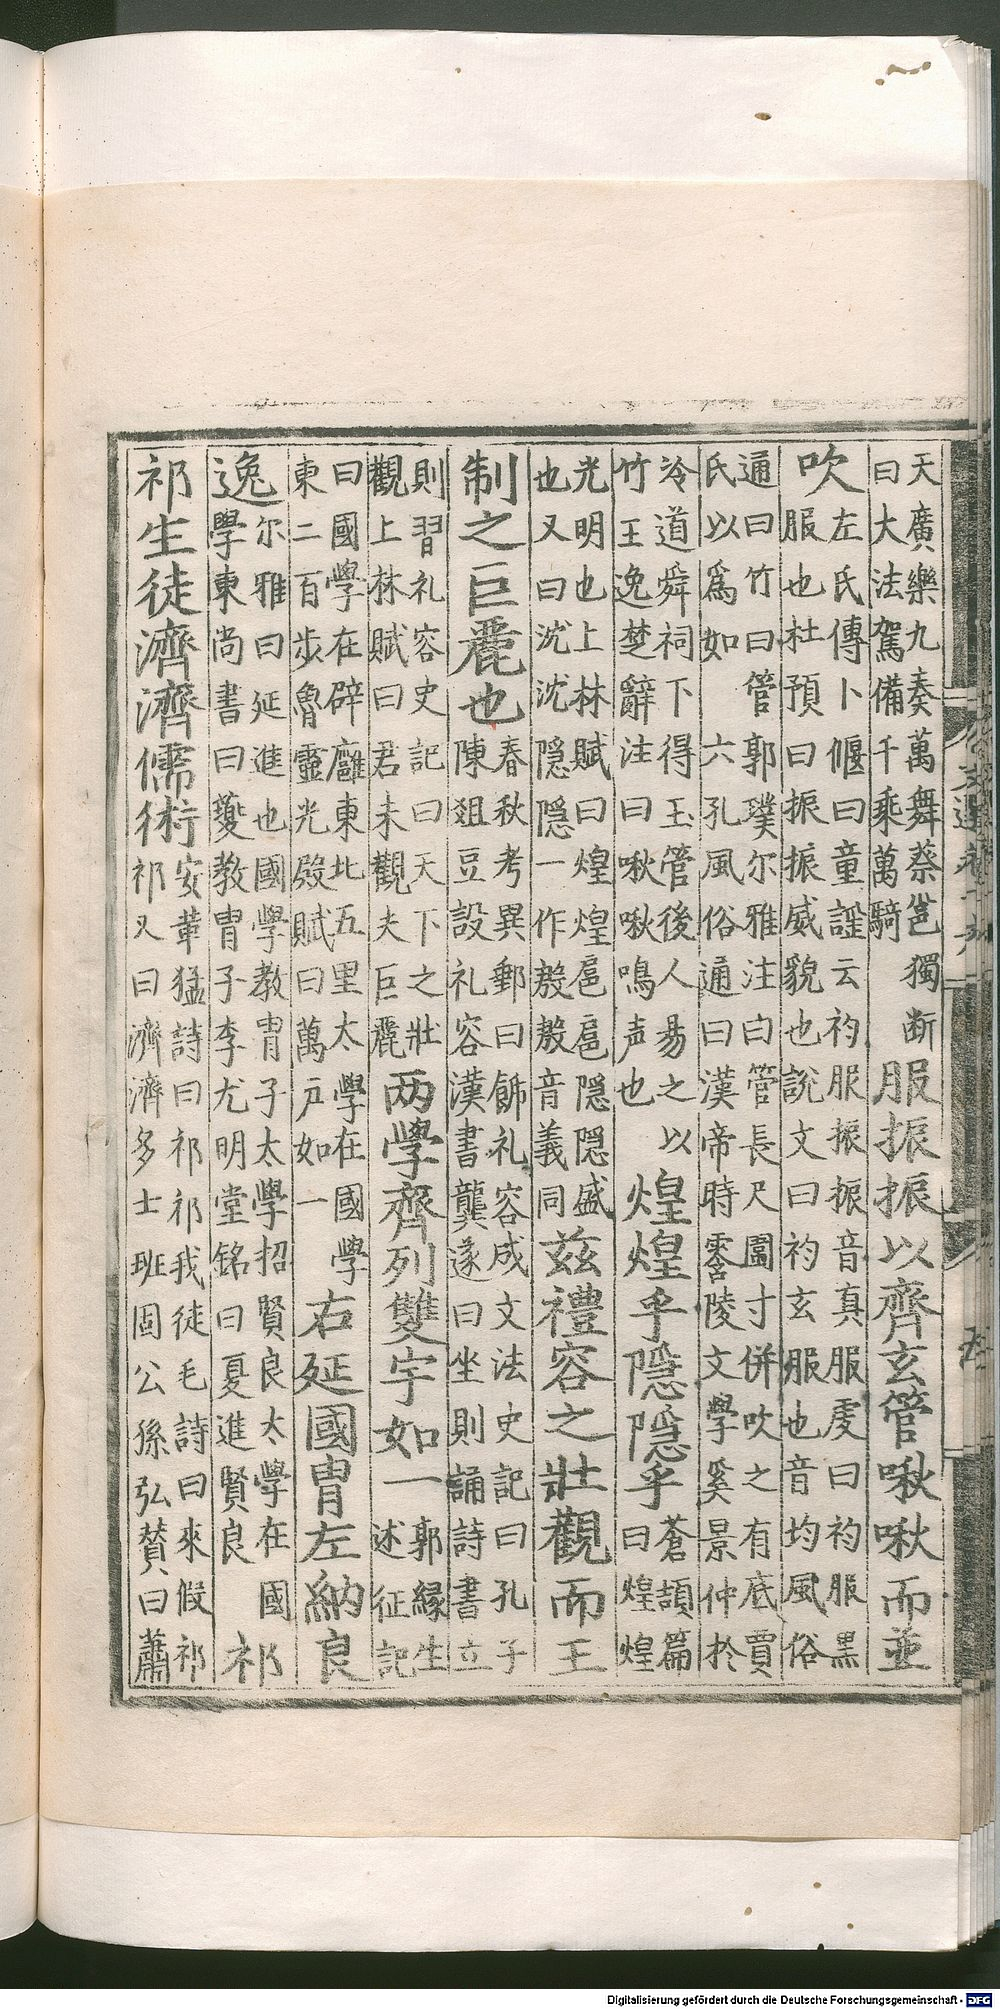 天廣樂九奏萬舞蔡邕獨断
曰大法駕備千乘萬騎
服振振以齊玄管啾啾而並
吹
左氏傳卜偃曰童謡云袀服振振音真服虔曰袀服黑
服也杜預曰振振威貌也說文曰袀玄服也音均風俗
通曰竹曰管郭璞尔雅注曰管長尺圍寸併吹之有底賈
氏以爲如六孔風俗通曰漢帝時零陵文學奚景仲於
泠道舜祠下得玉管後人易之以
竹王逸楚辭注曰啾啾鳴声也
煌煌乎隱隱乎
蒼頡篇
曰煌煌
光明也上林賦曰煌煌扈扈隱隱盛
也又曰沈沈隱隱一作殷殷音義同
茲禮容之壯觀而王
制之巨麗也
春秋考異郵曰飾礼容成文法史記曰孔子
陳爼豆設礼容漢書龔遂曰坐則誦詩書立
則習礼容史記曰天下之壯
觀上林賦曰君未觀夫巨麗
两學齊列雙宇如一
郭緣生
述征記
曰國學在辟廱東北五里太學在國學
東二百步魯靈光殿賦曰萬戶如一
右延國胄左納良
逸
尔雅曰延進也國學教胄子太學招賢良太學在國
學東尚書曰夔教胄子李尤明堂銘曰夏進賢良
祁
祁生徒濟濟儒術
安革猛詩曰祁祁我徒毛詩曰來假祁
祁又曰濟濟多士班固公孫弘賛曰蕭
Digitalisierung gefördert durch die Deutsche Forschungsgemeinschaft - DFG